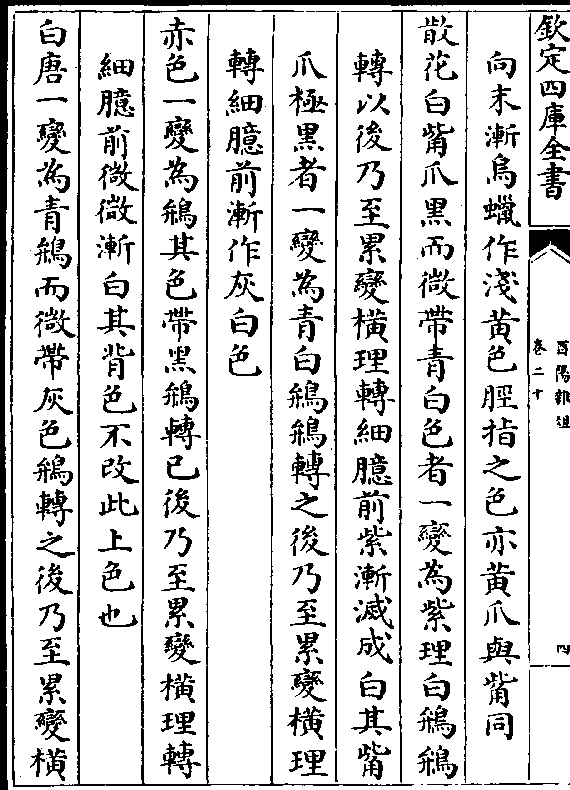 欽定四庫全書
酉陽雜俎
卷二十
四
向末漸烏蠟作淺黃色脛指之色亦黃爪與觜同
散花白觜爪黑而微帶青白色者一變為紫理白鴘鴘
轉以後乃至累變橫理轉細臆前紫漸滅成白其觜
爪極黑者一變為青白鴘鴘轉之後乃至累變橫理
轉細臆前漸作灰白色
赤色一變為鴘其色帶黑鴘轉已後乃至累變橫理轉
細臆前微微漸白其背色不改此上色也
白唐一變為青鴘而微帶灰色鴘轉之後乃至累變橫